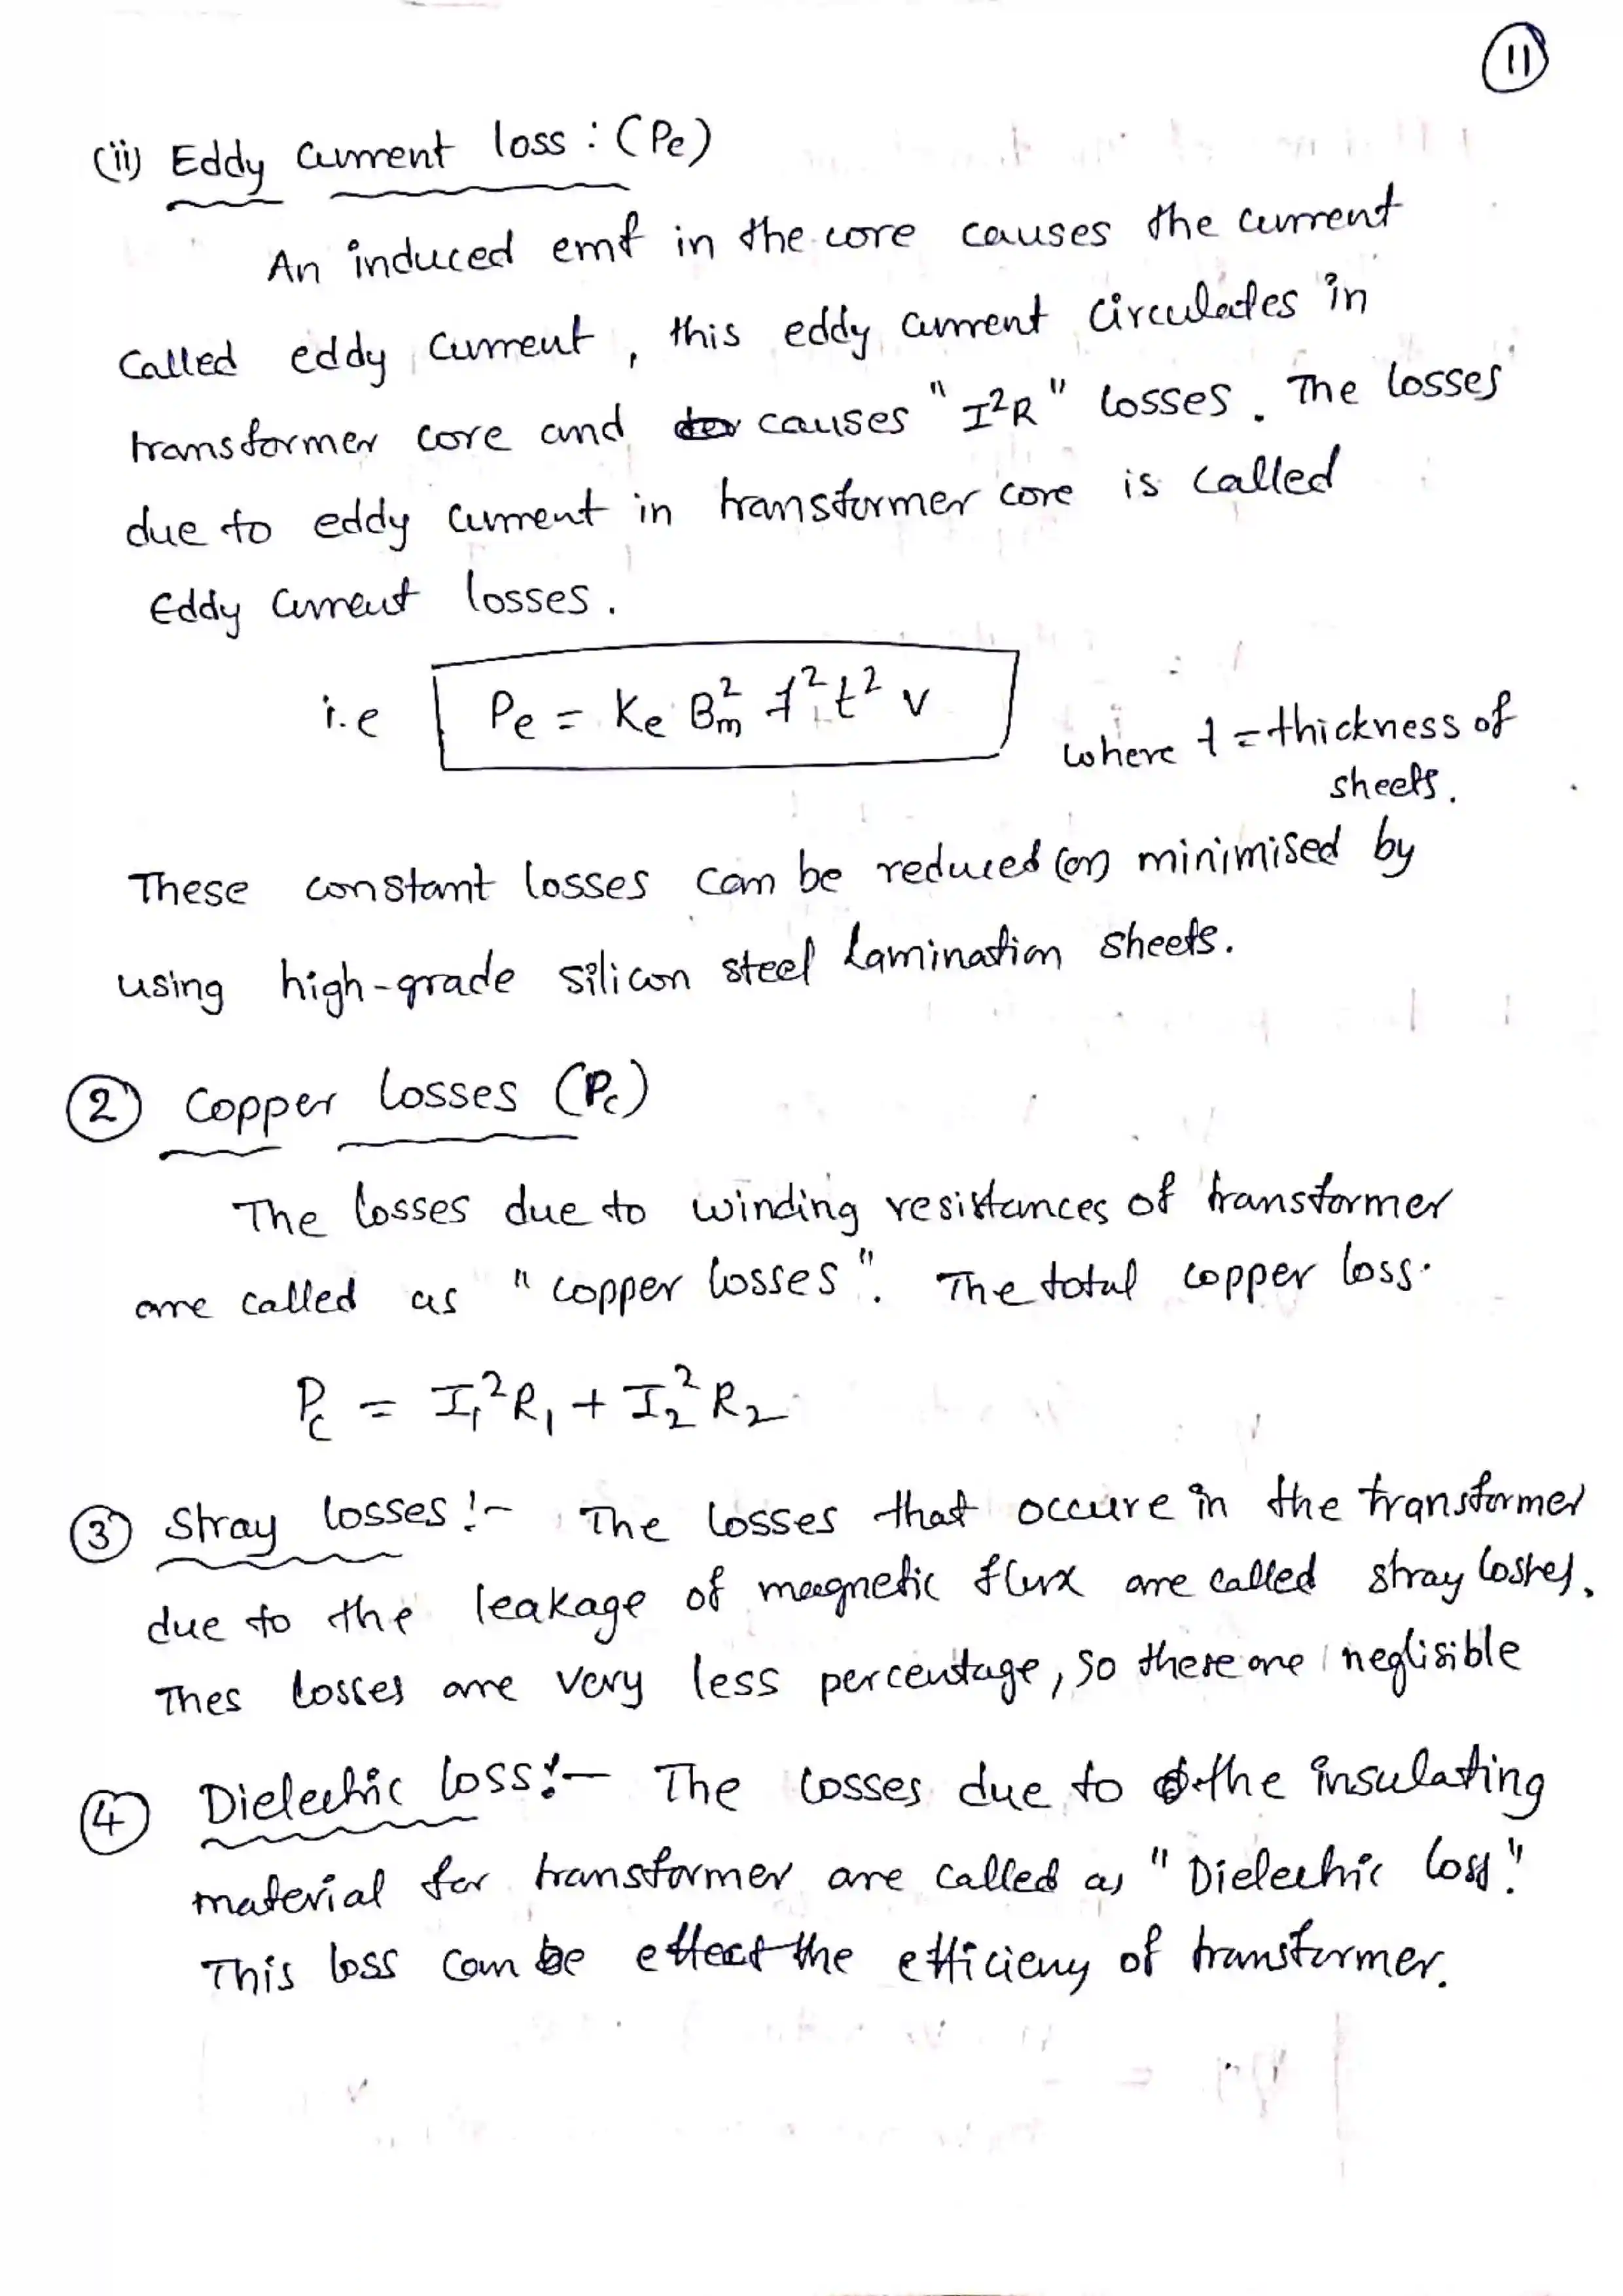 11
(ii) Eddy Current loss : (Pe)
An induced emf in the core causes the current
Called eddy current, this eddy current circulates in
transformer core and causes "I²R" losses. The losses
due to eddy current in transformer core is called
Eddy Current losses.
i.e Pe = Ke Bm² f² t² v where t = thickness of
sheets.
These constant losses can be reduced (or) minimised by
using high-grade silicon steel Lamination sheets.
② Copper losses (Pc)
The losses due to winding resistances of transformer
are called as "copper losses". The total copper loss.
Pc = I₁²R₁ + I₂²R₂
③ Stray losses :- The losses that occure in the transformer
due to the leakage of magnetic flux are called stray losses.
Thes losses are very less percentage, so these are neglisible
④ Dielectric loss :- The losses due to the insulating
material for transformer are called as "Dielectric loss".
This loss can be effect the efficieny of transformer.